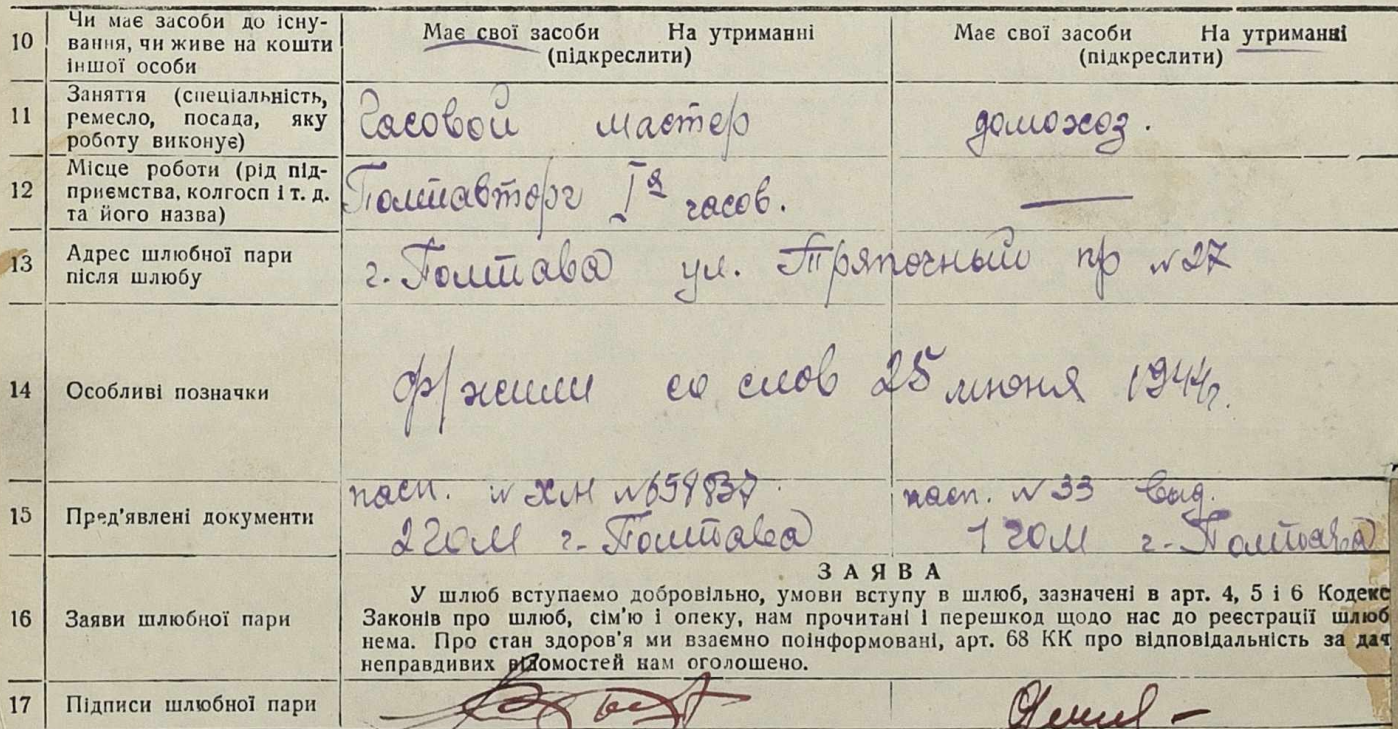 10 Чи має засоби до існу-
вання, чи живе на кошти
іншої особи
Має свої засоби На утриманні
(підкреслити)
Має свої засоби На утриманні
(підкреслити)
11 Заняття (спеціальність,
ремесло, посада, яку
роботу виконує)
Часовой мастер
домохоз.
12 Місце роботи (рід під-
приємства, колгосп і т. д.
та його назва)
Полтавторг Iя часов.
—
13 Адрес шлюбної пари
після шлюбу
г. Полтава ул. Тряпочный пр №27
14 Особливі позначки
ф/жили со слов 25 июня 1944г.
15 Пред'явлені документи
пасп. № 659837
2 гом г. Полтава
пасп. № 33 выд.
1 гом г. Полтава
16 Заяви шлюбної пари
ЗАЯВА
У шлюб вступаємо добровільно, умови вступу в шлюб, зазначені в арт. 4, 5 і 6 Кодекс
Законів про шлюб, сім'ю і опеку, нам прочитані і перешкод щодо нас до реєстрації шлюб
нема. Про стан здоров'я ми взаємно поінформовані, арт. 68 КК про відповідальність за дач
неправдивих відомостей нам оголошено.
17 Підписи шлюбної пари